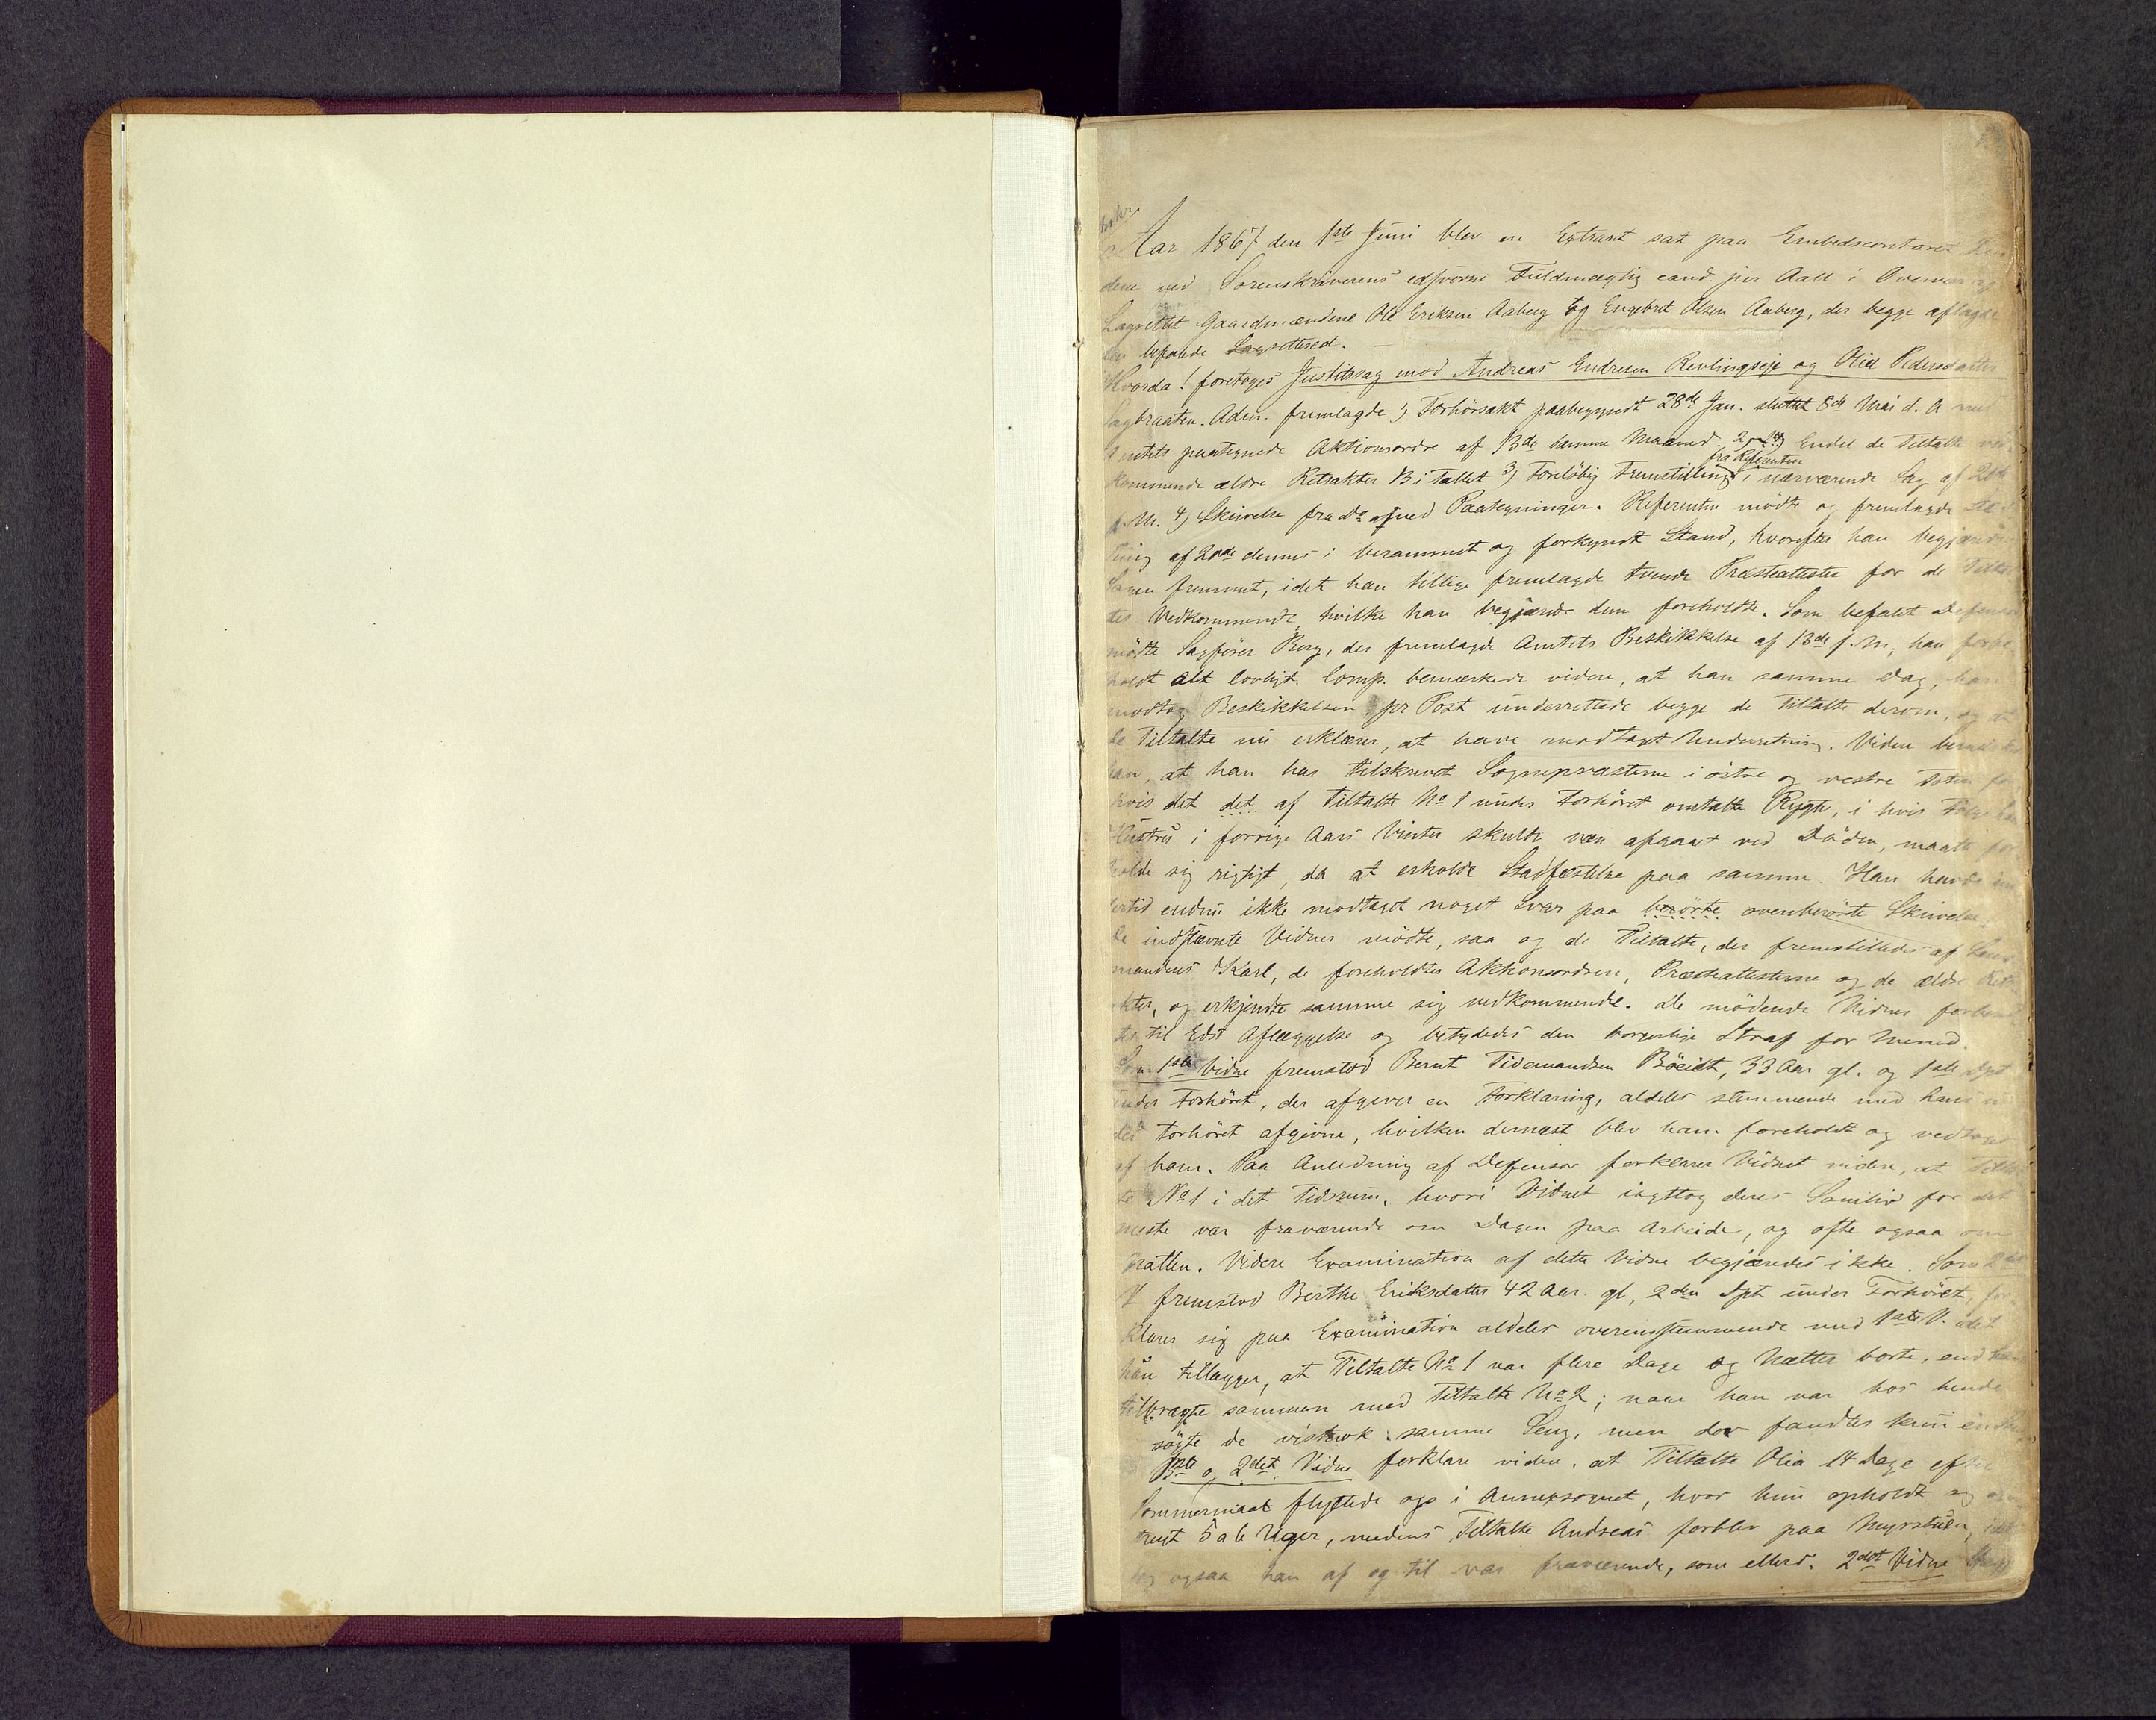 Aar 1867 den 1ste Juni blev en Extraret sat paa Embedscontoret
dene ved Sorenskriverens edsvorne Fuldmægtig cand jur Aall i Overvær af
Lagrettet Gaardmændene Ole Eriksen Aaberg og Engebret Olsen Aaberg, der begge aflagde
den befalede Lagrettesed. —
Hvorda! foretoges Justitssag mod Andreas Endresen Revlingseje og Olia Pedersdatter
Sagbraaten. Adm. fremlagde 1) Forhørsakt paabegyndt 28de Jan. sluttet 8de Mai d. A med
Amtets paategnede Aktionsordre af 13de samme Maaned, 2) Endel de Tiltalte ved
kommende ældre Retsakter 13 i Tallet 3) Foreløbig Fremstilling fra Referenten i nærværende Sag af
f. M. 4) Skrivelse fra Do med Paategninger. Referenten mødte og fremlagde
ning af 20de dennes i berammet og forkyndt Stand, hvorefter han begjærede
Sagen fremmet, idet han tillige fremlagde tvende Præsteattester for de Tiltal
tes Vedkommende, hvilke han begjærede dem foreholdte. Som befalet Defensor
mødte Sagfører Berg, der fremlagde Amtets Beskikkelse af 13de f. M., han forbe
holdt alt lovligt. Comp. bemærkede videre, at han samme Dag, han
modtog Beskikkelsen pr Post underrettede begge de Tiltalte derom, og at
de Tiltalte nu erklærer, at have modtaget Underretning. Videre bemærkede
han, at han har tilskrevet Sognepræsterne i østre og vestre Toten for
hvis det det af Tiltalte No 1 under Forhøret omtalte Rygte, i hvis Følge hans
Hustru i forrige Aars Vinter skulde være afgaaet ved Døden, maatte for
holde sig rigtigt, da at erholde Stadfæstelse paa samme. Han havde im
lertid endnu ikke modtaget noget Svar paa berørte ovenberørte Skrivelse.
De indstevnte Vidner mødte, saa og de Tiltalte, der fremstilledes af Lens
mandens Karl, de foreholdtes Aktionsordren, Præsteattesterne og de ældre Rets
akter, og erkjendte samme sig vedkommende. De mødende Vidner forbered
tes til Eds Aflæggelse og betydedes den borgerlige Straf for Mened.
Som 1ste Vidne fremstod Bernt Tidemandsen Bøeidt, 33 Aar gl. og 1ste Dpt
under Forhøret, der afgiver en Forklaring, aldeles stemmende med hans un
der Forhøret afgivne, hvilken dernæst blev ham foreholdt og vedtaget
af ham. Paa Anledning af Defensor forklarer Vidnet videre, at Tiltal
te No 1 i det Tidsrum, hvori Vidnet iagttog deres Samliv for det
meste var fraværende om Dagen paa Arbeide, og ofte ogsaa om
Natten. Videre Examination af dette Vidne begjæredes ikke. Som 2det
V fremstod Berthe Eriksdatter 42 Aar gl, 2den Dpt under Forhøret, for
klarer sig paa Examination aldeles overensstemmende med 1ste V. idet
hun tillægger, at Tiltalte No 1 var flere Dage og Nætter borte, end han
tilbragte sammen med Tiltalte No 2; naar han var hos hende
søgte de vistnok samme Seng, men der fandtes kun en
1ste og 2det Vidne forklare videre, at Tiltalte Olia 14 Dage efter
Sommermaal flyttede op i Annexsognet, hvor hun opholdt sig om
trent 5 a 6 Uger, medens Tiltalte Andreas forblev paa Myrstuen, idet
dog ogsaa han af og til var fraværende, som ellers. 2det Vidne